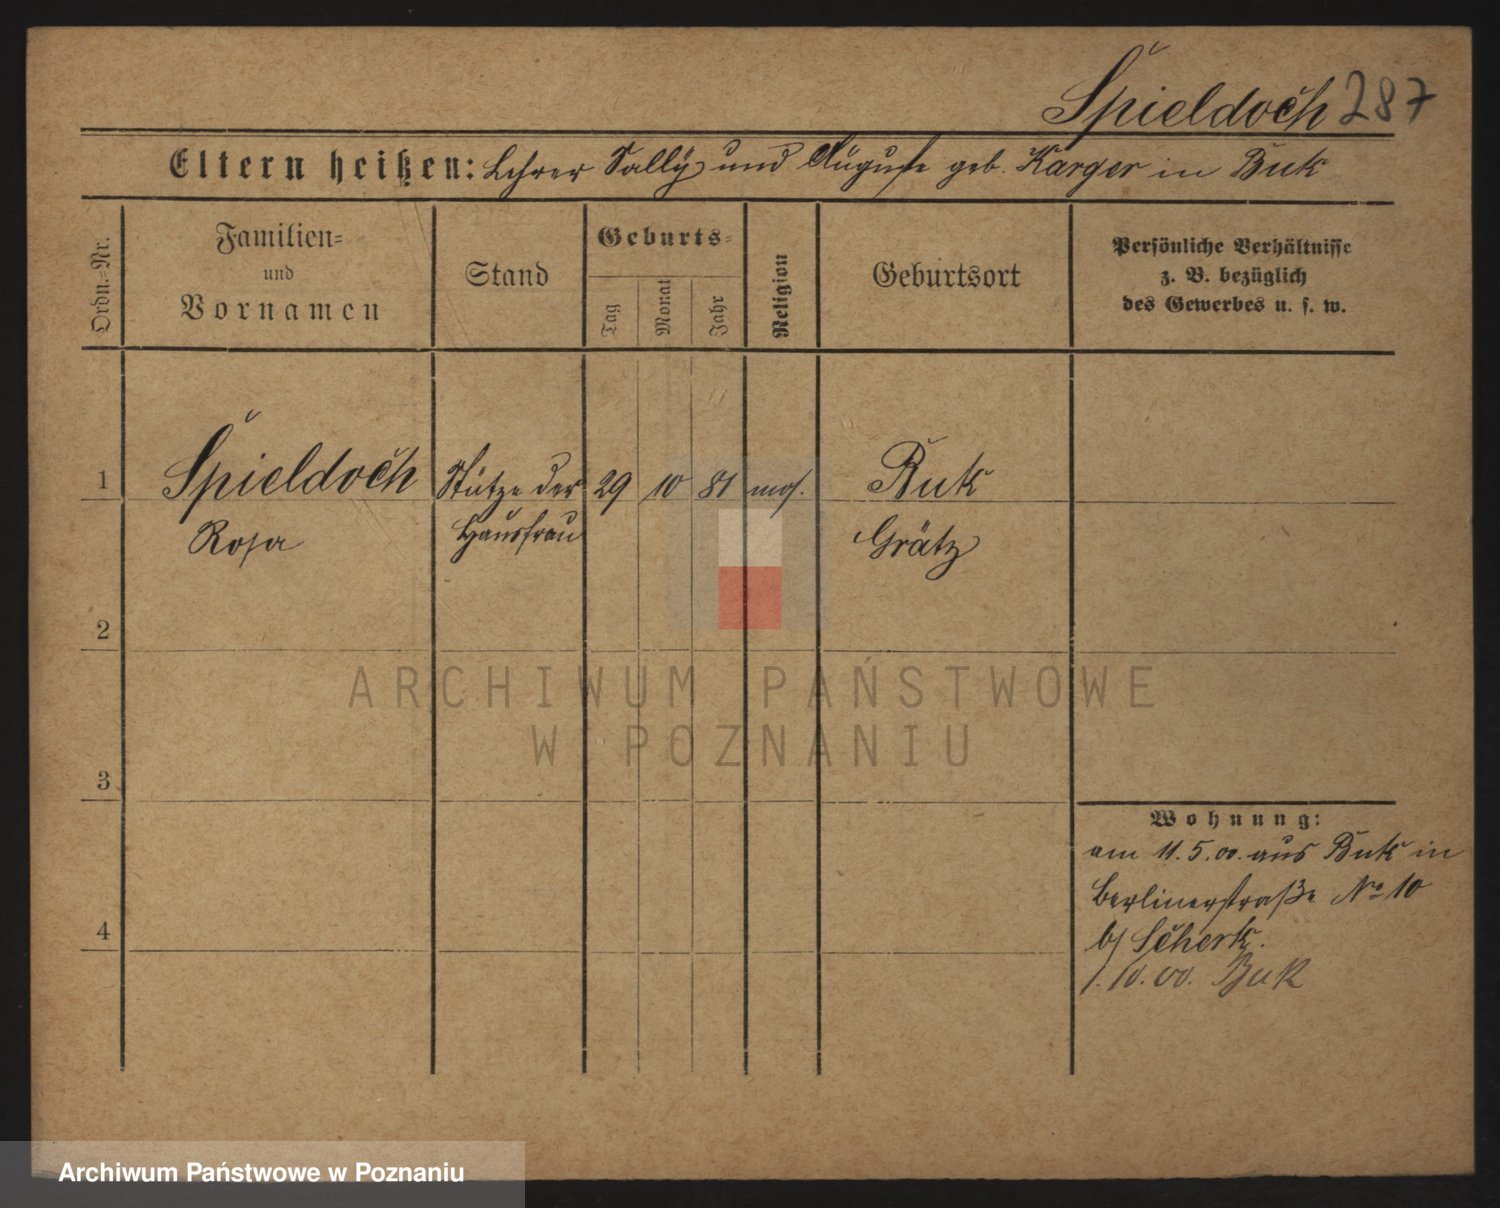 Spieldoch 287
Eltern heißen: Lehrer Sally und Auguste geb. Karger in Buk
Ordn.-Nr.
Familien-
und
Vornamen
Stand
Geburts-
Tag
Monat
Jahr
Religion
Geburtsort
Persönliche Verhältnisse
z. B. bezüglich
des Gewerbes u. s. w.
1 Spieldoch Stütze der 29 10 81 mos. Buk
Rosa Hausfrau Grätz
2
ARCHIWUM PAŃSTWOWE
W POZNANIU
3
Wohnung:
am 11.5.00. aus Buk in
Berlinerstraße No 10
4
b/ Scherk.
1.10.00. Buk
Archiwum Państwowe w Poznaniu